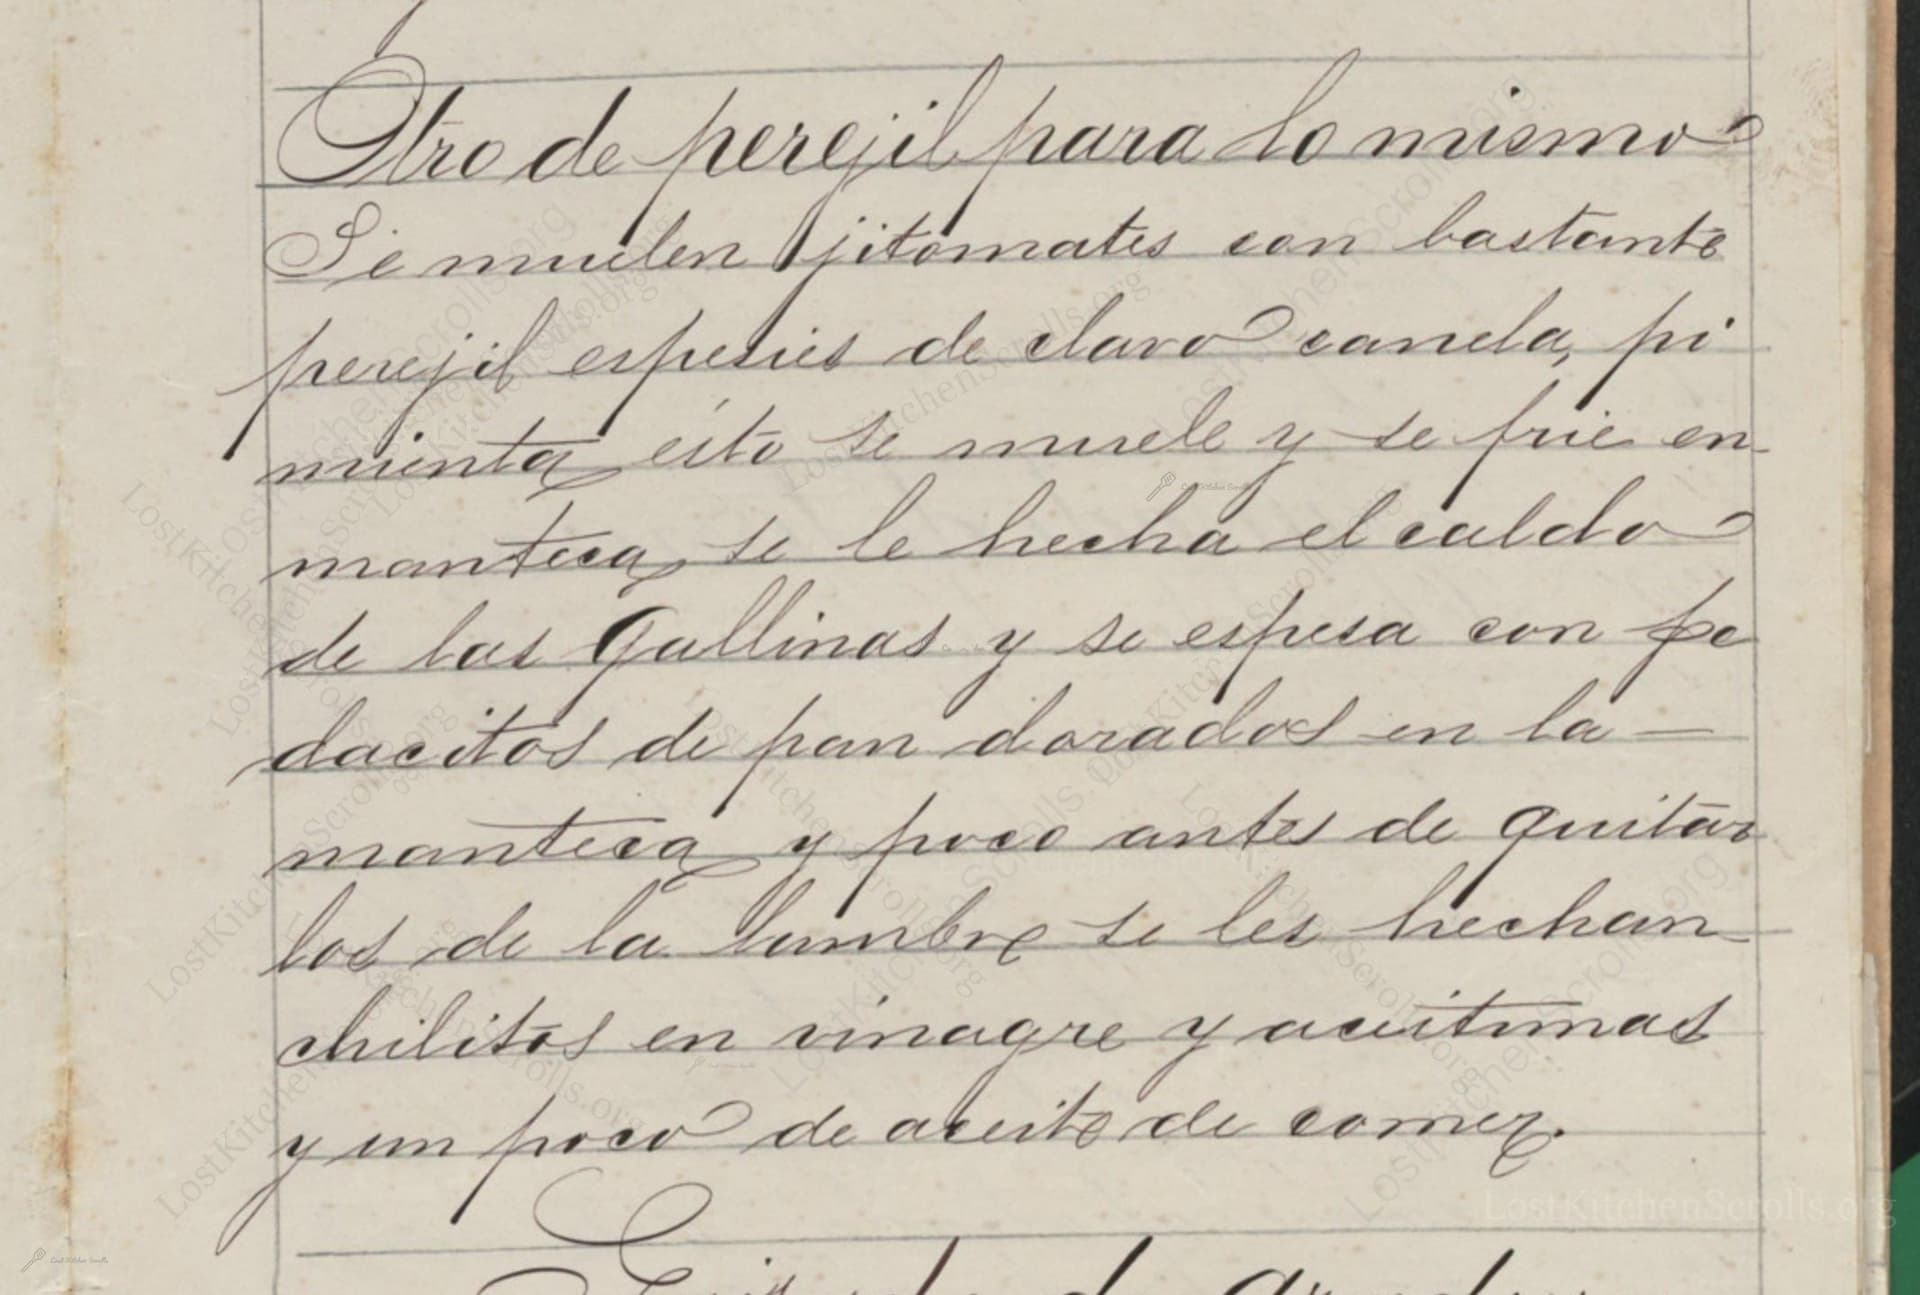 Otro de perejil para lo mismo
Se muelen jitomates con bastante
perejil espesies de clavo canela, pi
mienta esto se muele y se frie en
manteca, se le hecha el caldo
de las gallinas y se espesa con pe
dacitos de pan dorados en la —
manteca y poco antes de quitar
los de la lumbre se les hechan
chilitos en vinagre y aceitunas
y un poco de aceite de comer.
LostKitchenScrolls.org